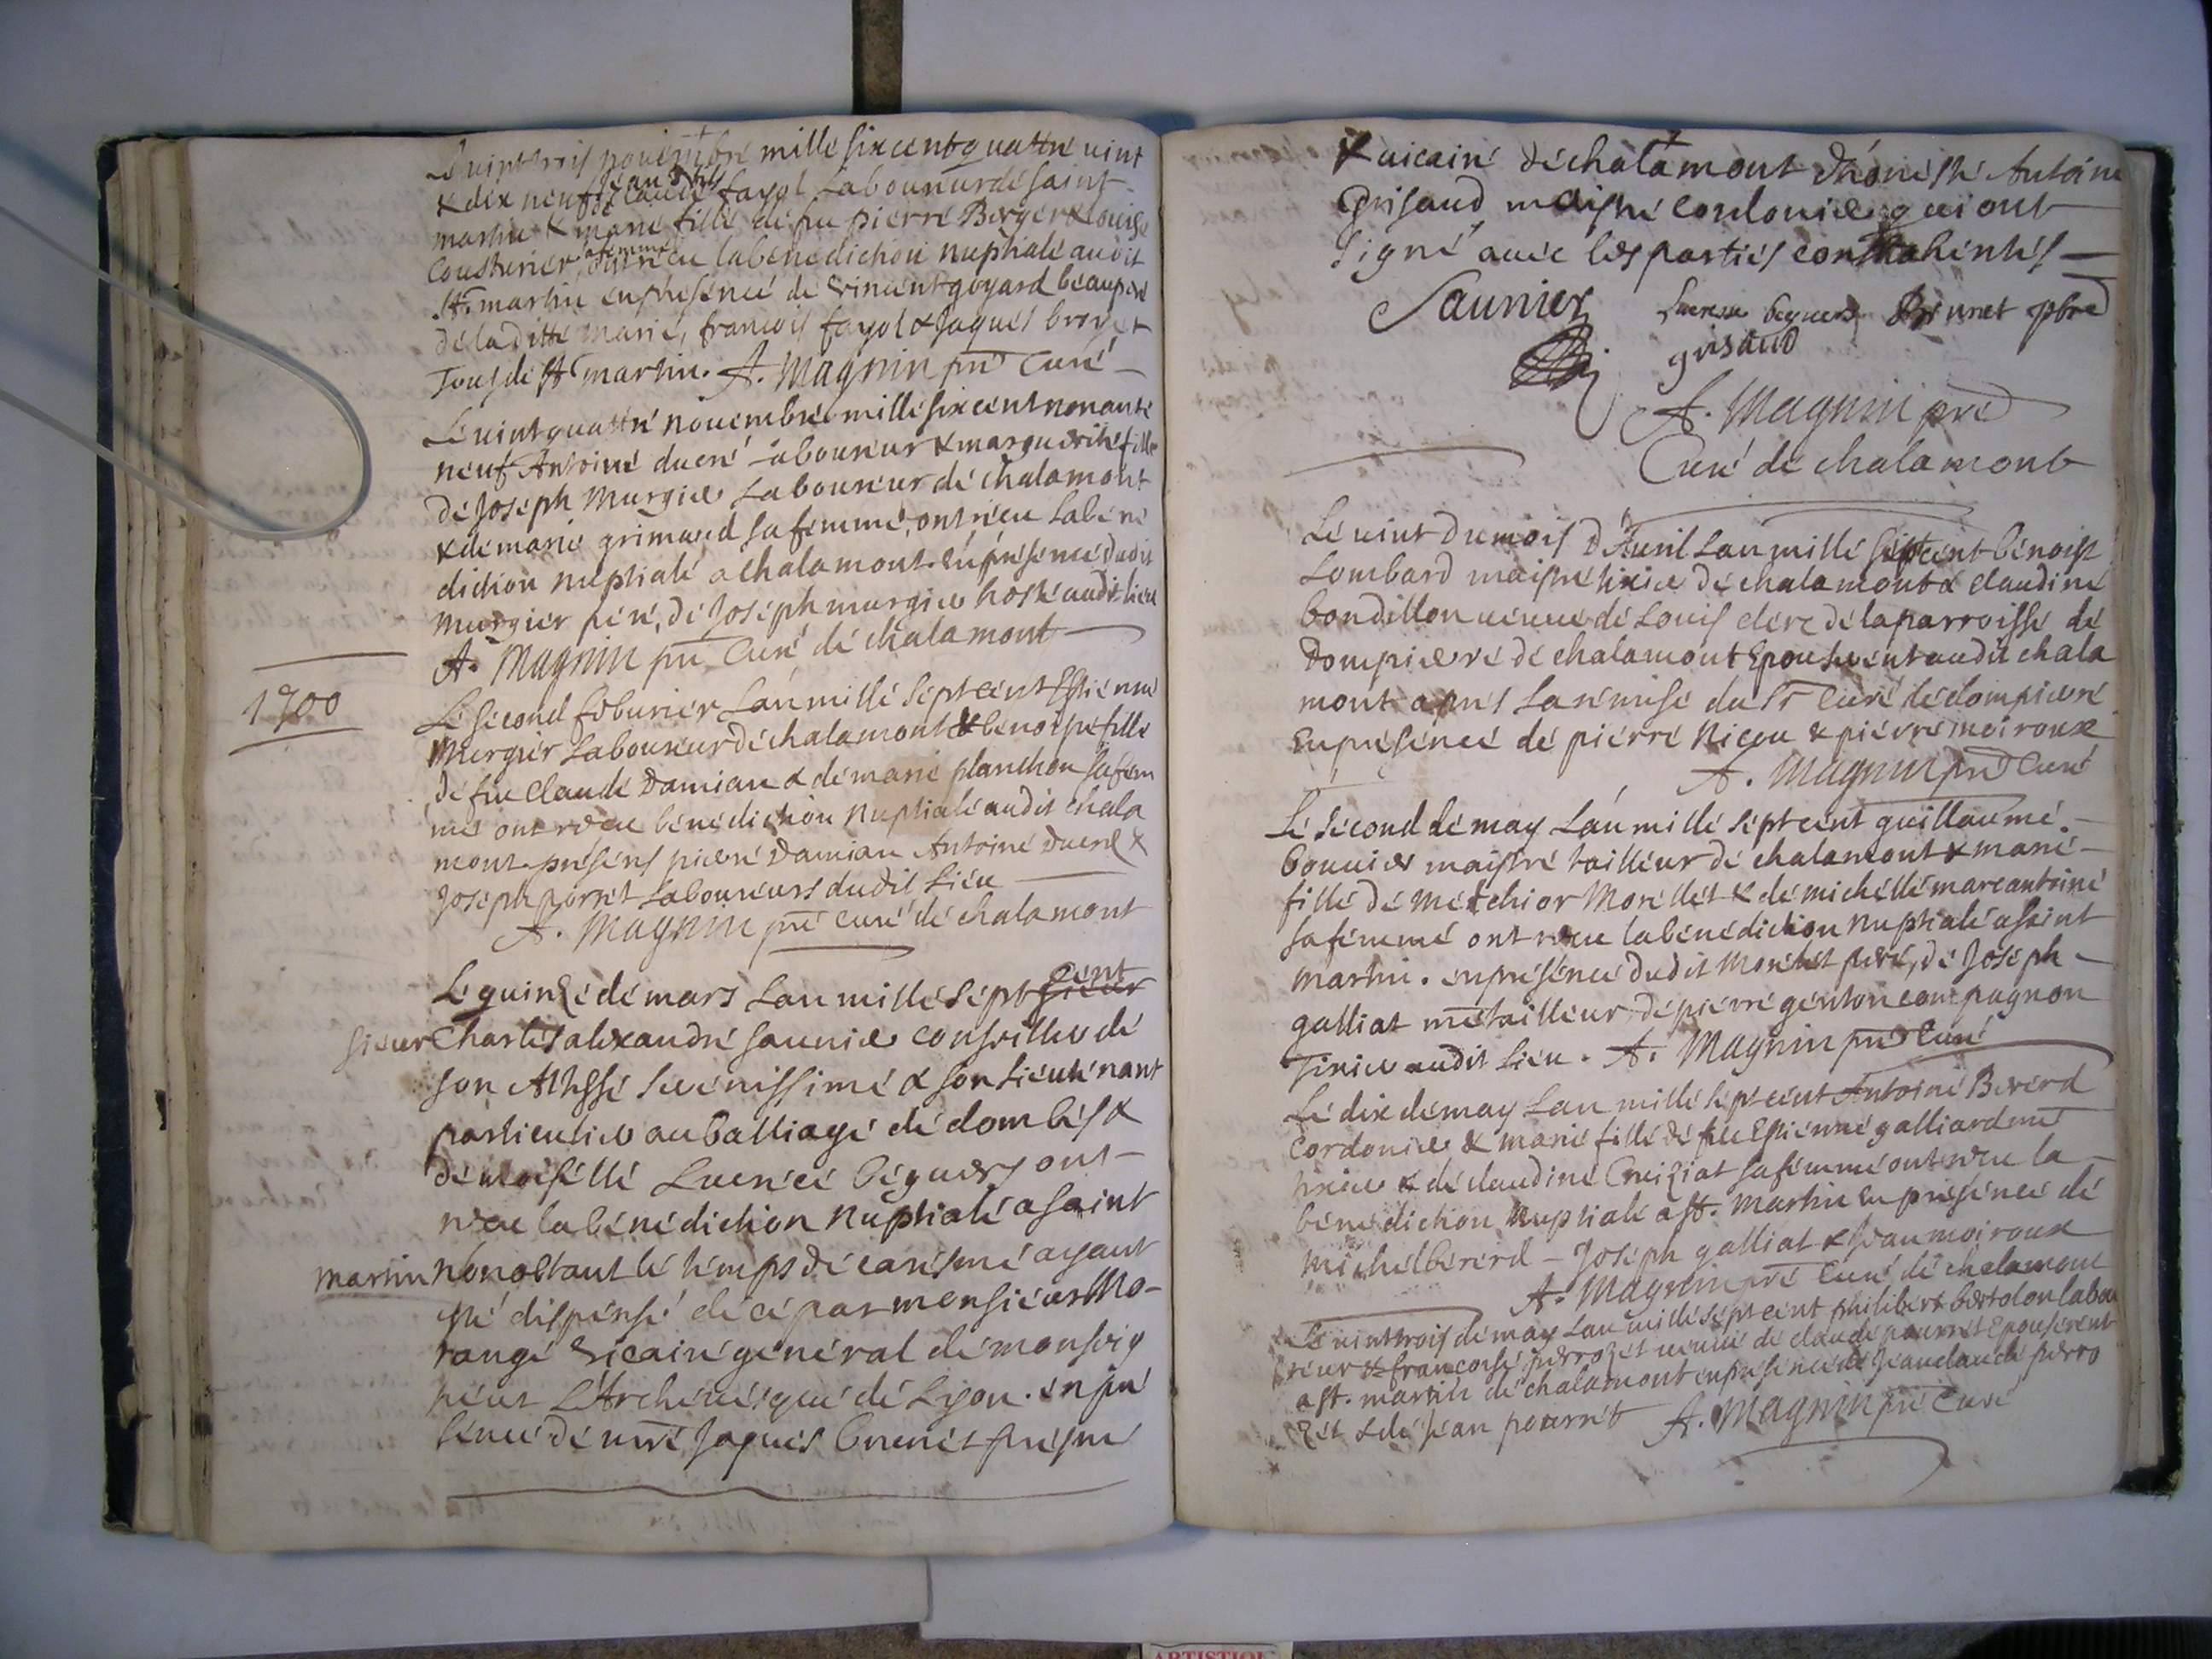 Le vint trois novembre mille six cent quattre vint
& dix neuf Jean fils de Claude fayol Laboureur de saint
martin & marie fille de feu pierre Berger & Louise
Cousturier sa femme ont receu la benediction nuptiale audit
St. martin en presence de Vincent goyard beaupere
de laditte marie, francois fayol & Jaques broyet
Tous de St martin. A. Magnin pre Curé
Le vint quattre novembre mille six cent nonante
neuf Antoine ducré Laboureur & marguerite fille
de Joseph Murgier Laboureur de chalamont
& de marie grimaud sa femme, ont receu la bene
diction nuptiale a chalamont. En presence dudit
Murgier pere, de Joseph murgier hoste audit lieu
A. Magnin pre Curé de chalamont
1700
Le second febvrier L'an mille sept cent Estienne
Murgier Laboureur de chalamont & benoiste fille
de feu Claude Damian & de marie planchon sa fem
me ont receu benediction Nuptiale audit chala
mont. presens pierre Damian Antoine Ducré &
Joseph porret Laboureurs dudit Lieu
A. Magnin pre Curé de chalamont
Le quinze de mars Lan mille sept cent sieur
sieur Charles alexandre saunier conseiller de
son Altesse serenissime & son Lieutenant
particulier au Balliage de dombes &
demoiselle Lucrece beguers ont
receu la benediction Nuptiale a saint
martin nonobstant le temps de caresme ayant
esté dispensé de ce par monsieur Mo-
range Vicaire general de monseig
neur L'Archevesque de Lyon. en pre
sence de mre Jaques brunet prestre
& vicaire de chalamont d'honeste Antoine
Grisaud maistre cordonier qui ont
signé avec les parties contrahentes
Saunier Lucrece beguers Brunet pbre
grisaud
A. Magnin pre
Curé de chalamont
Le vint du mois d'Avril Lan mille sept cent benoist
Lombard maistre tixier de chalamont & claudine
bondillon veuve de Louis clerc de la parroisse de
Dompierre de chalamont Epouserent audit chala
mont apres La remise du Sr Curé de dompierre
En presence de pierre Nicou & pierre moiroux
A. Magnin pre Curé
Le second de may L'an mille sept cent guillaume
bouvier maistre tailleur de chalamont & marie
fille de Melchior Morellet & de michelle marcantoine
sa femme ont receu la benediction Nuptiale a saint
martin. en presence dudit Morellet pere, de Joseph
galliat me tailleur de pierre genton compagnon
Tixier audit lieu. A. Magnin pre Curé
Le dix de may Lan mille sept cent Antoine Bererd
Cordonier & marie fille de feu Estienne galliard me
tixier & de claudine Cruiziat sa femme ont receu la
benediction Nuptiale a St. Martin En presence de
Michel bererd Joseph galliat & Jean moiroux
A. Magnin pre Curé de chalamont
Le vint trois de may Lan mille sept cent philibert bertolon labou
reur & francoise perrozet veuve de claude pourret Epouserent
a St. martin de chalamont en presence de Jean claude perro
zet & de Jean pourret A. Magnin pre Curé